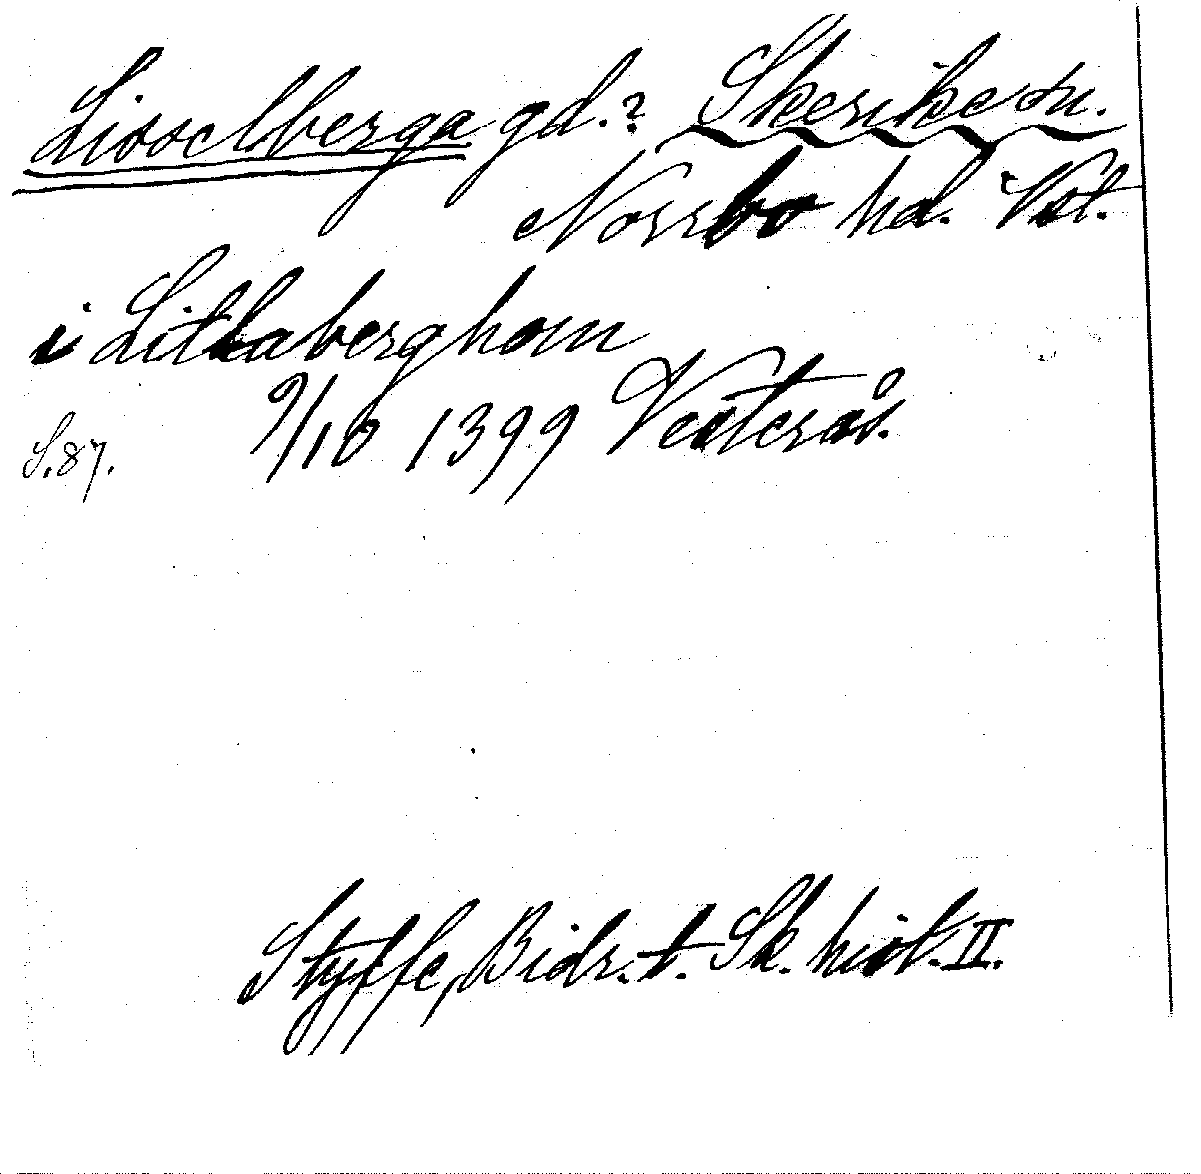 Lisselberga gd.? Skerike sn.
Norrbo hd. Vstl.
i Litlaberghom
9/10 1399 Vesterås.
S.87.
Styffe, Bidr. t. Sk. hist. II.